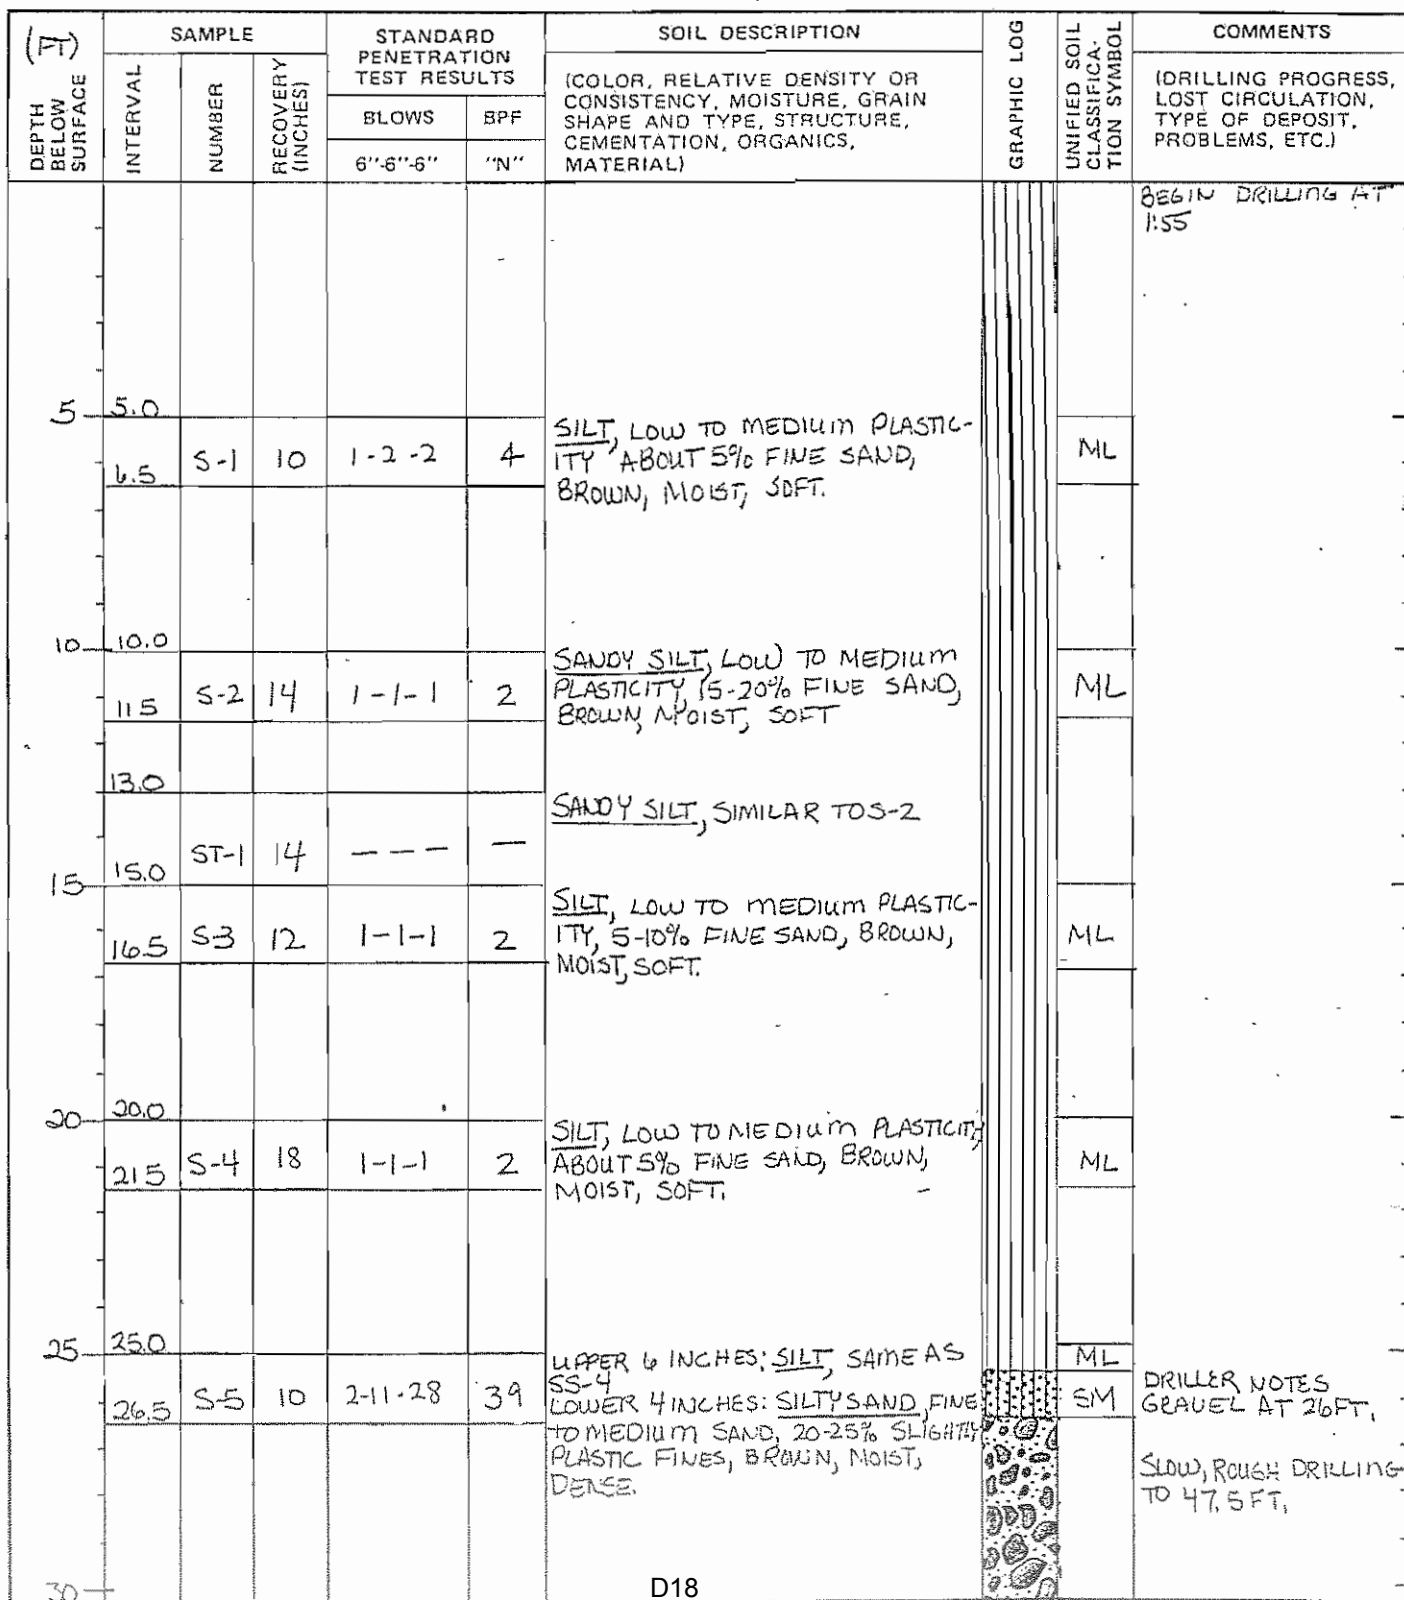 (FT)
DEPTH BELOW SURFACE
SAMPLE
INTERVAL
NUMBER
RECOVERY (INCHES)
STANDARD
PENETRATION
TEST RESULTS
BLOWS
BPF
6"-6"-6"
"N"
SOIL DESCRIPTION
(COLOR, RELATIVE DENSITY OR
CONSISTENCY, MOISTURE, GRAIN
SHAPE AND TYPE, STRUCTURE,
CEMENTATION, ORGANICS,
MATERIAL)
GRAPHIC LOG
UNIFIED SOIL
CLASSIFICA-
TION SYMBOL
COMMENTS
(DRILLING PROGRESS,
LOST CIRCULATION,
TYPE OF DEPOSIT,
PROBLEMS, ETC.)
BEGIN DRILLING AT
1:55
5
5.0
6.5 S-1 10 1-2-2 4
SILT, LOW TO MEDIUM PLASTIC-
ITY ABOUT 5% FINE SAND,
BROWN, MOIST, SOFT.
ML
10
10.0
11.5 S-2 14 1-1-1 2
SANDY SILT, LOW TO MEDIUM
PLASTICITY, 15-20% FINE SAND,
BROWN, MOIST, SOFT
ML
13.0
SANDY SILT, SIMILAR TO S-2
ST-1 14 - - - -
15
15.0
16.5 S-3 12 1-1-1 2
SILT, LOW TO MEDIUM PLASTIC-
ITY, 5-10% FINE SAND, BROWN,
MOIST, SOFT.
ML
20
20.0
21.5 S-4 18 1-1-1 2
SILT, LOW TO MEDIUM PLASTICITY,
ABOUT 5% FINE SAND, BROWN,
MOIST, SOFT.
ML
25
25.0
26.5 S-5 10 2-11-28 39
UPPER 6 INCHES: SILT, SAME AS
SS-4
LOWER 4 INCHES: SILTY SAND, FINE
TO MEDIUM SAND, 20-25% SLIGHTLY
PLASTIC FINES, BROWN, MOIST,
DENSE.
ML
SM
DRILLER NOTES
GRAVEL AT 26FT.
SLOW, ROUGH DRILLING
TO 47.5 FT.
30
D18